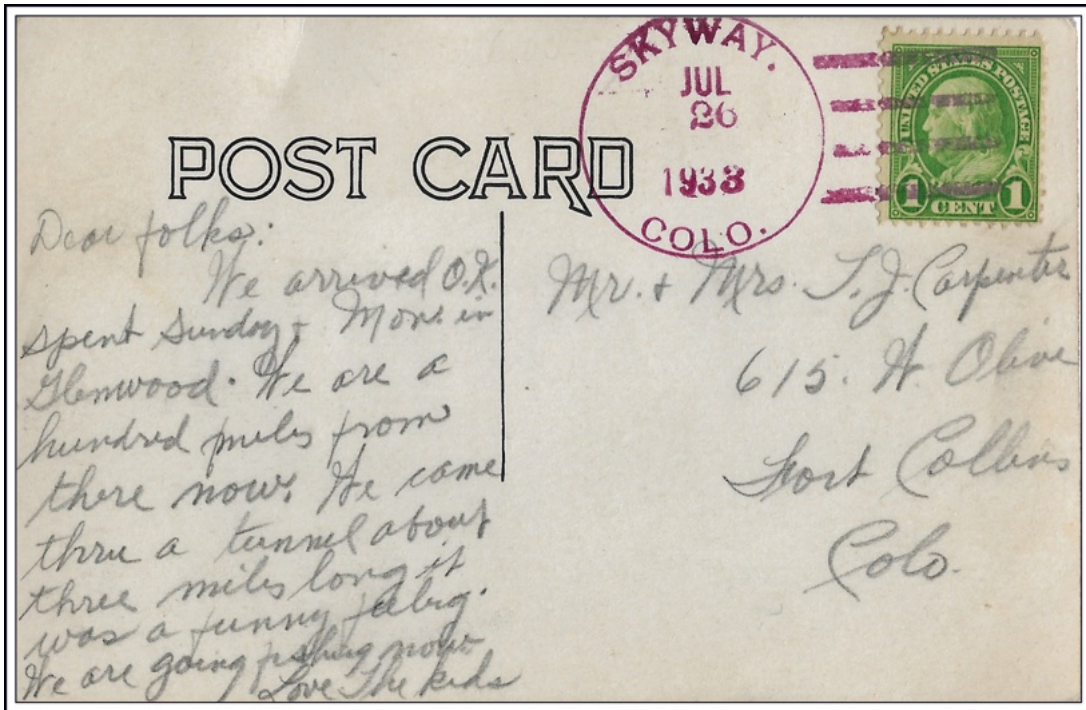 SKYWAY.
JUL
26
1933
COLO.
UNITED STATES POSTAGE
1 CENT 1
POST CARD
Dear folks:
We arrived O.K.
spent Sunday + Mon. in
Glenwood. We are a
hundred miles from
there now. We came
thru a tunnel about
three miles long it
was a funny feeling.
We are going fishing now
Love The kids
Mr. + Mrs. T. J. Carpenter
615. W. Olive
Fort Collins
Colo.